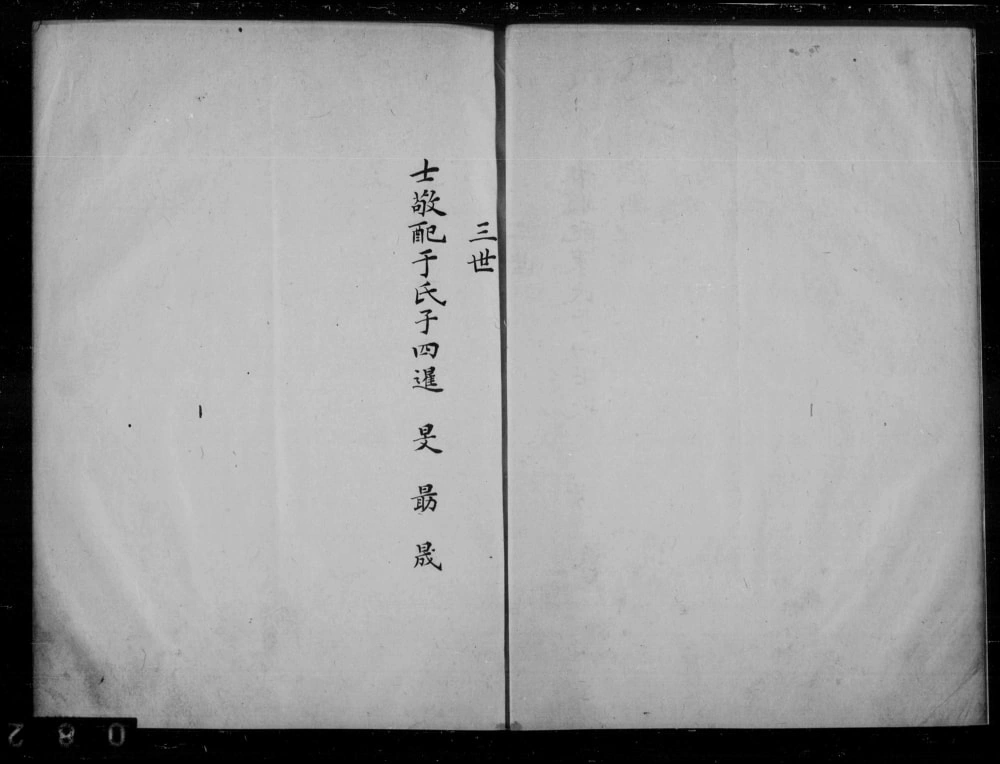 三世
士敬配于氏子四暹 旻 勗 晟